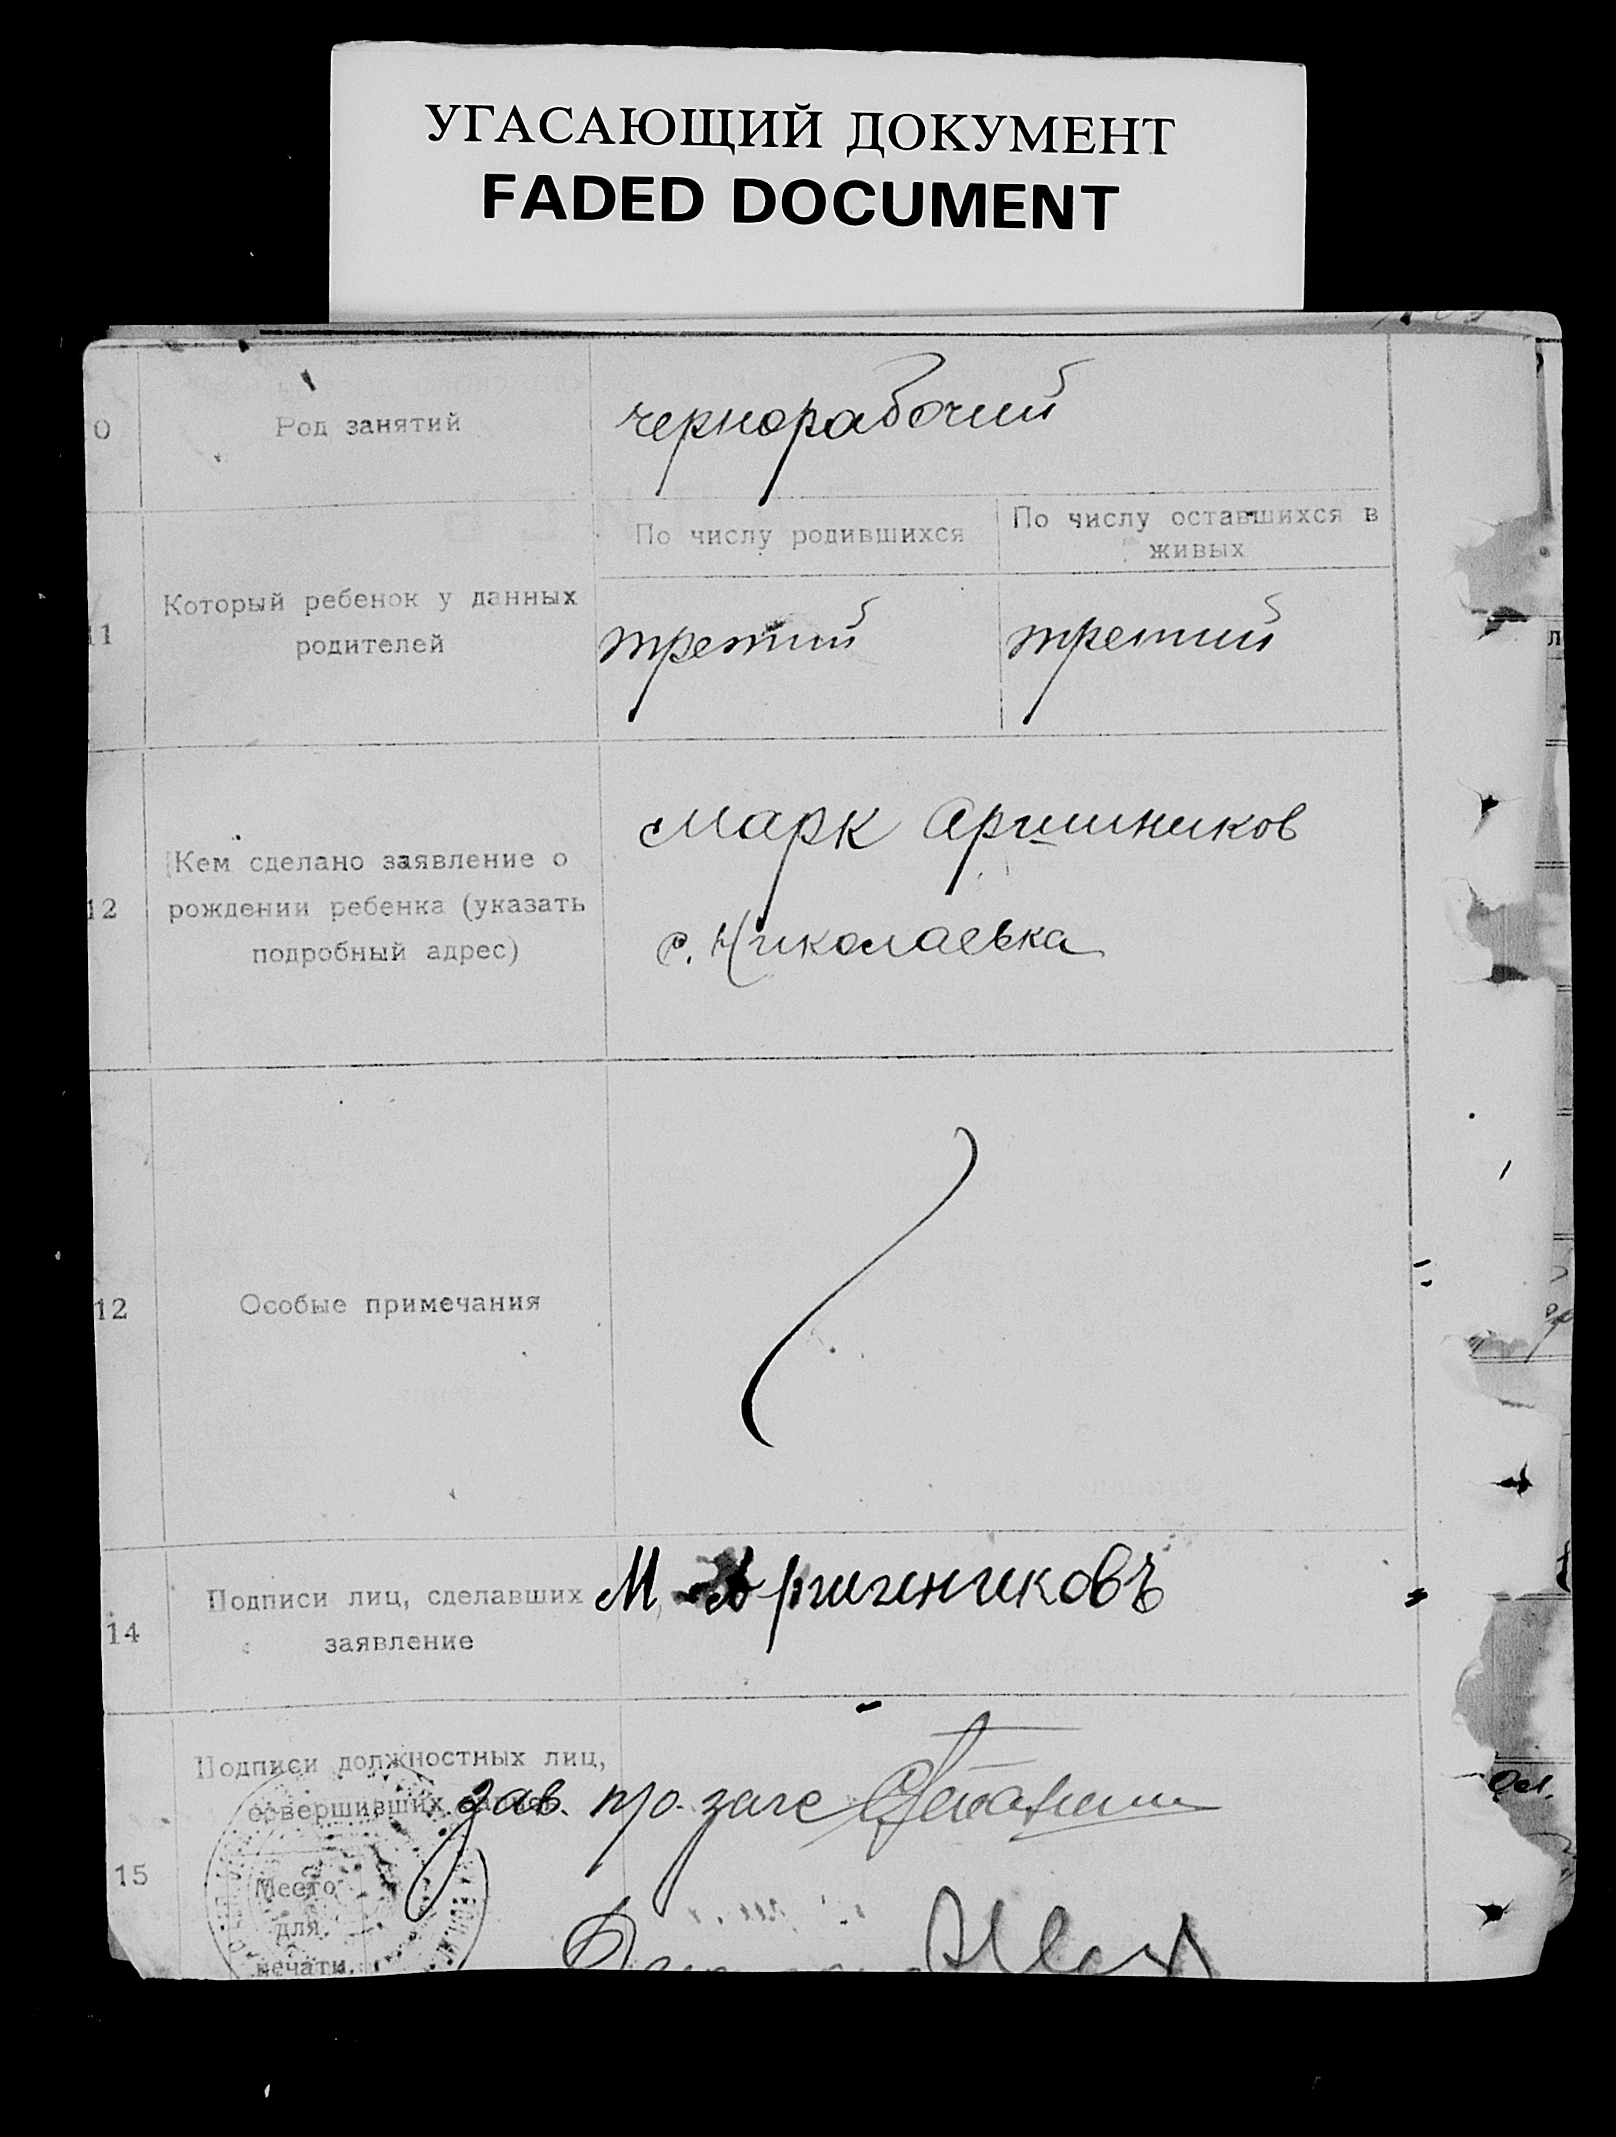 УГАСАЮЩИЙ ДОКУМЕНТ
FADED DOCUMENT
0 Род занятий чернорабочий
По числу родившихся По числу оставшихся в живых
11 Который ребенок у данных
родителей третий третий
12 Кем сделано заявление о
рождении ребенка (указать
подробный адрес)
Марк Аршинников
с. Николаевка
12 Особые примечания
14 Подписи лиц, сделавших
заявление
М. Аршинниковъ
15 Подписи должностных лиц,
совершивших
зав. про. загс
Место
для
печати.